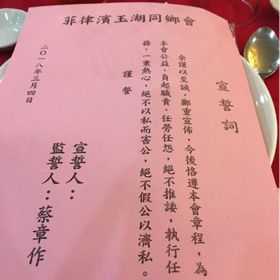 菲律濱玉湖同鄉會
宣誓詞
余謹以至誠，鄭重宣佈，今後恪遵本會章程，為
本會公益，負起職責，任勞任怨，絕不推諉，執行任
務，一秉熱心，絕不以私而害公，絕不假公以濟私。
謹誓
宣誓人：
監誓人：蔡章作
二〇一八年三月四日